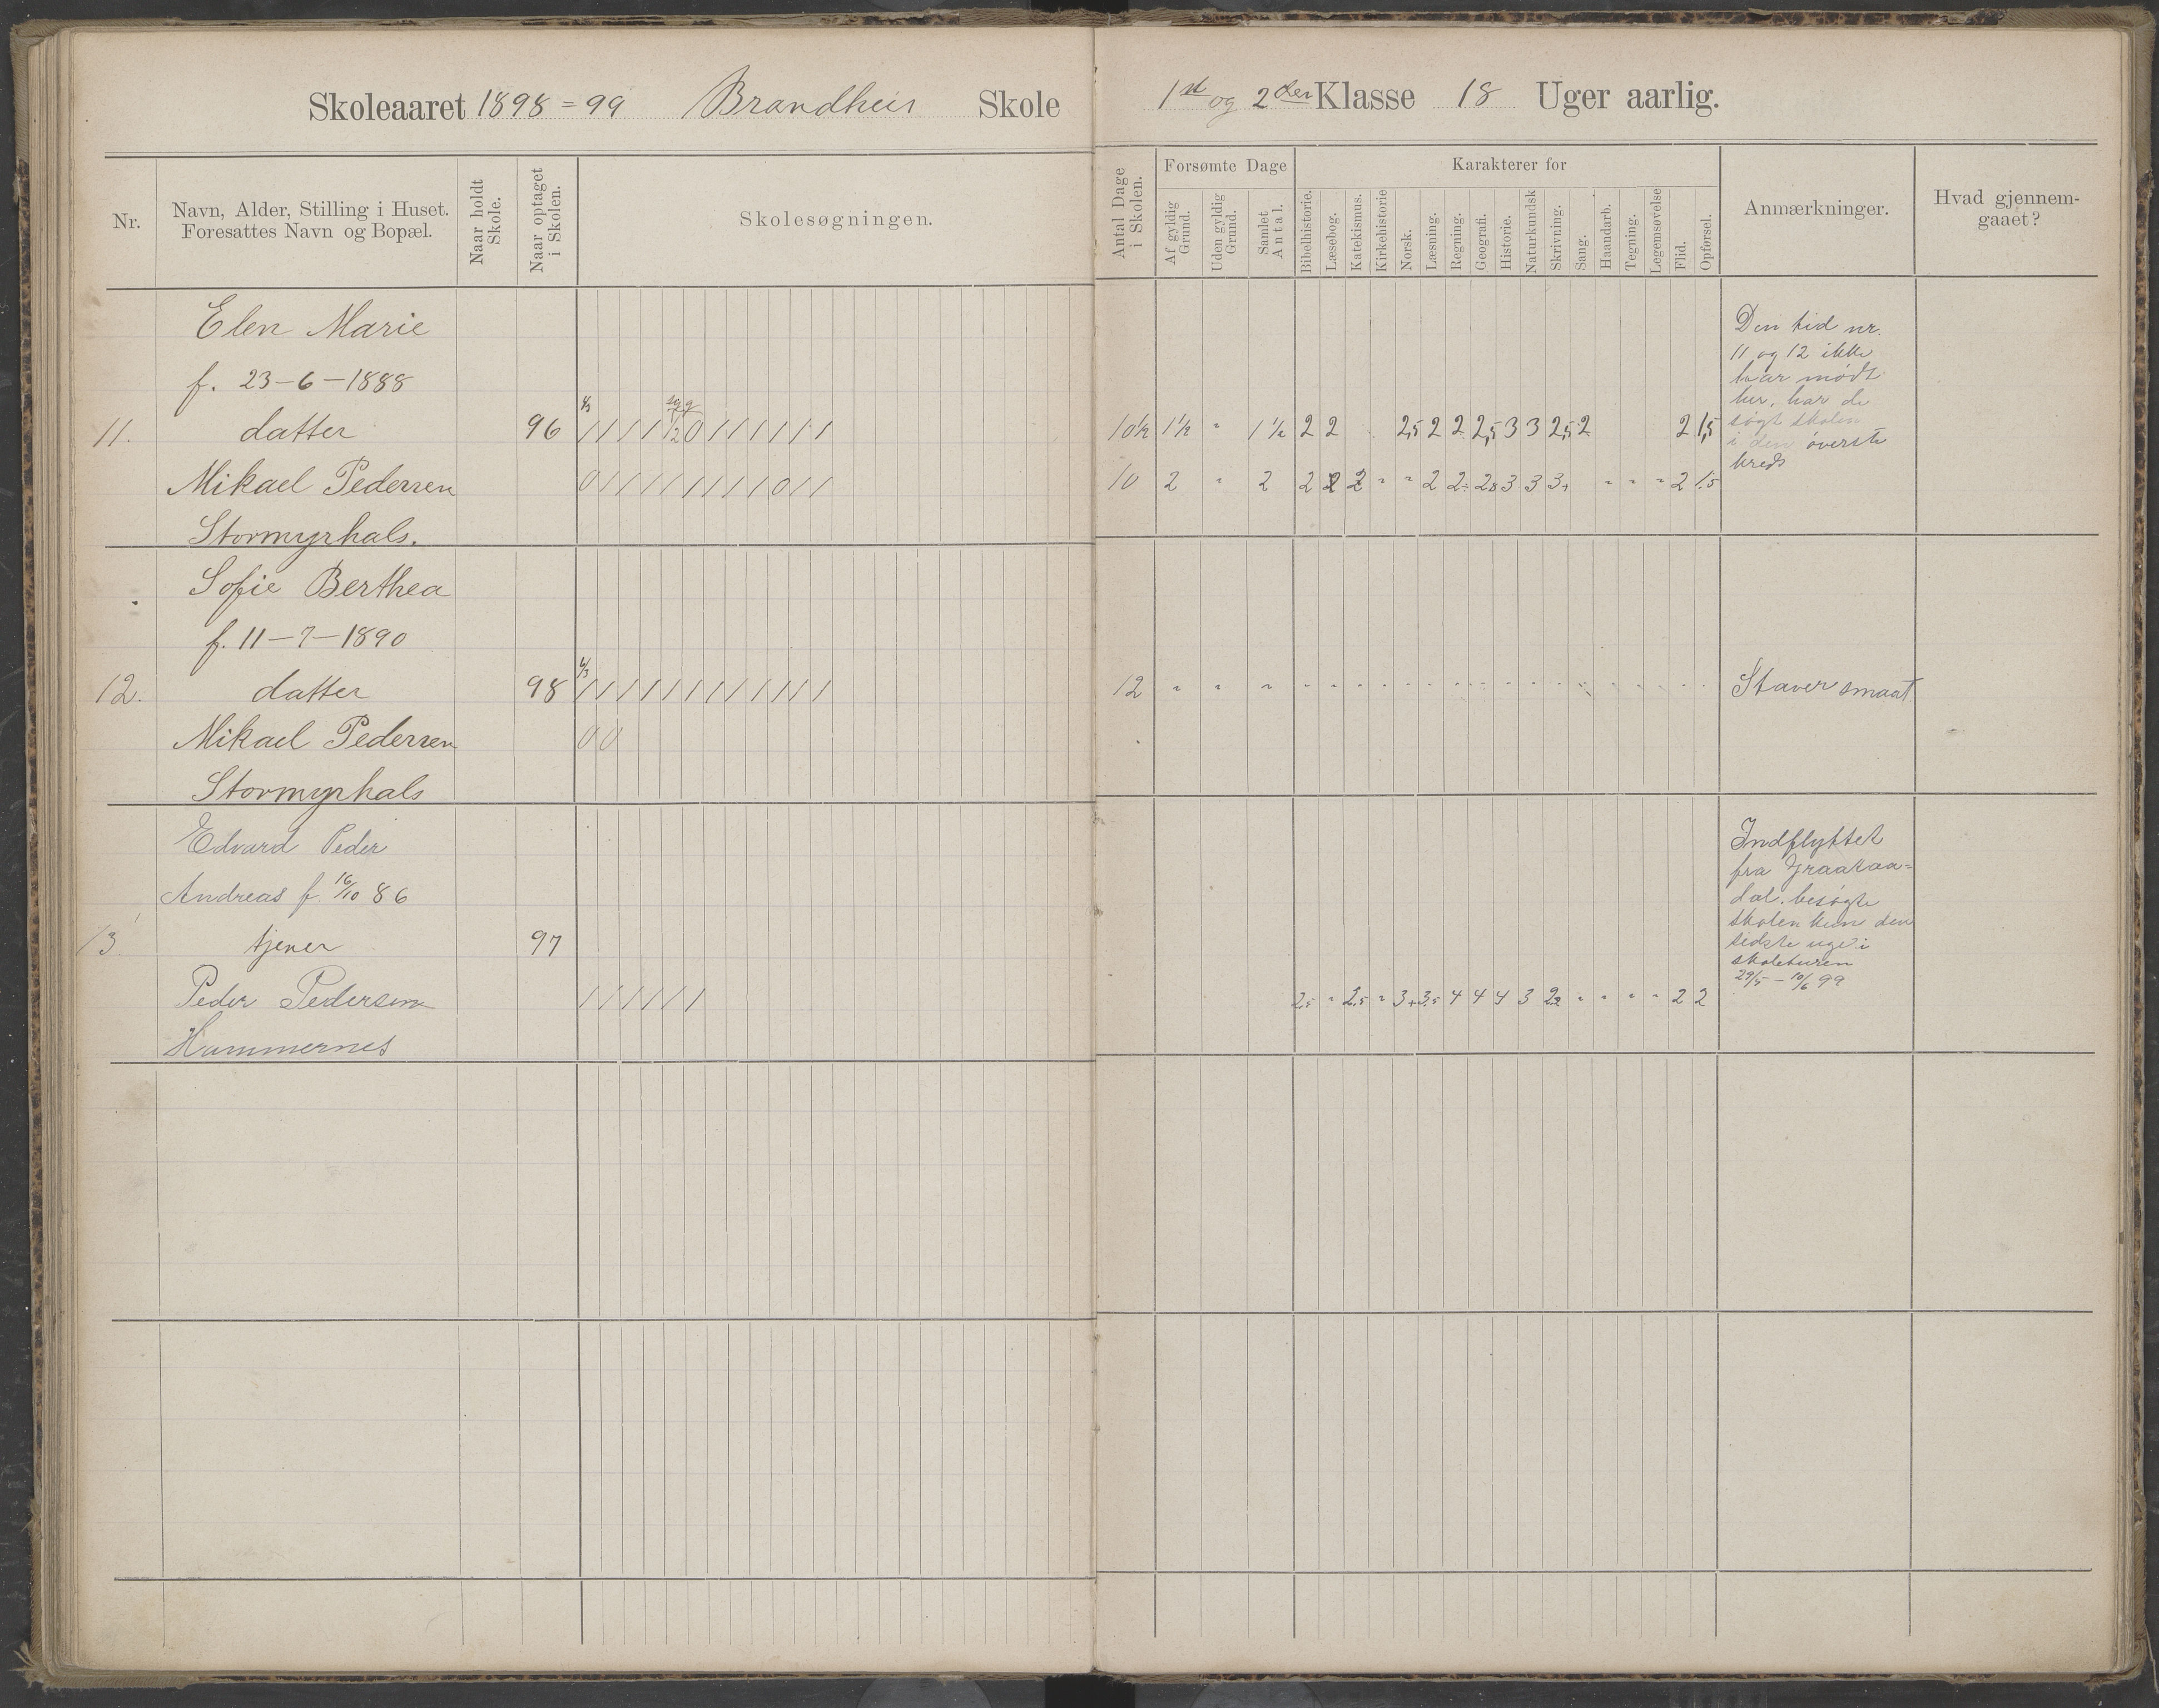 Skoleaaret 1898=99 Brandheis Skole
1st og 2den Klasse 18 Uger aarlig.
Nr.
Navn, Alder, Stilling i Huset.
Foresattes Navn og Bopæl.
Naar holdt
Skole.
Naar optaget
i Skolen.
Skolesøgningen.
Antal Dage
i Skolen.
Forsømte Dage
Af gyldig
Grund.
Uden gyldig
Grund.
Samlet
Antal.
Karakterer for
Bibelhistorie.
Læsebog.
Katekismus.
Kirkehistorie
Norsk.
Læsning.
Regning.
Geografi.
Historie.
Naturkundsk
Skrivning.
Sang.
Haandarb.
Tegning.
Legemsøvelse
Flid.
Opførsel.
Anmærkninger.
Hvad gjennem-
gaaet?
Elen Marie
f. 23-6-1888
11. datter 96 / / / / 0 / / / / / / 10½ 1½ " 1½ 2 2 2,5 2 2 2,5 3 3 2,5 2 2 1,5
Mikael Pedersen 0 / / / / / / / / 0 / / 10 2 " 2 2 2 2 " " 2 2÷ 2,8 3 3 3+ " " " 2 1.5
Stormyrhals.
Den tid nr.
11 og 12 ikke
har mødt
her, har de
søgt skolen
i den øverste
kreds
Sofie Berthea
f. 11-7-1890
12. datter 98 / / / / / / / / / / / / 12 " " " " " " " " " " " " " " " " " " " " Staver smaat
Mikael Pedersen 0 0
Stormyrhals
Edvard Peder
Andreas f. 16/10 86
13. tjener 97
Peder Pedersen / / / / / / 2,5 " 2,5 " 3+ 3,5 4 4 4 3 2,2 " " " " 2 2
Hammernes
Indflyttet
fra Graataa=
dal. besøgte
skolen kun den
sidste uge i
skoleturen
29/5 - 10/6 99